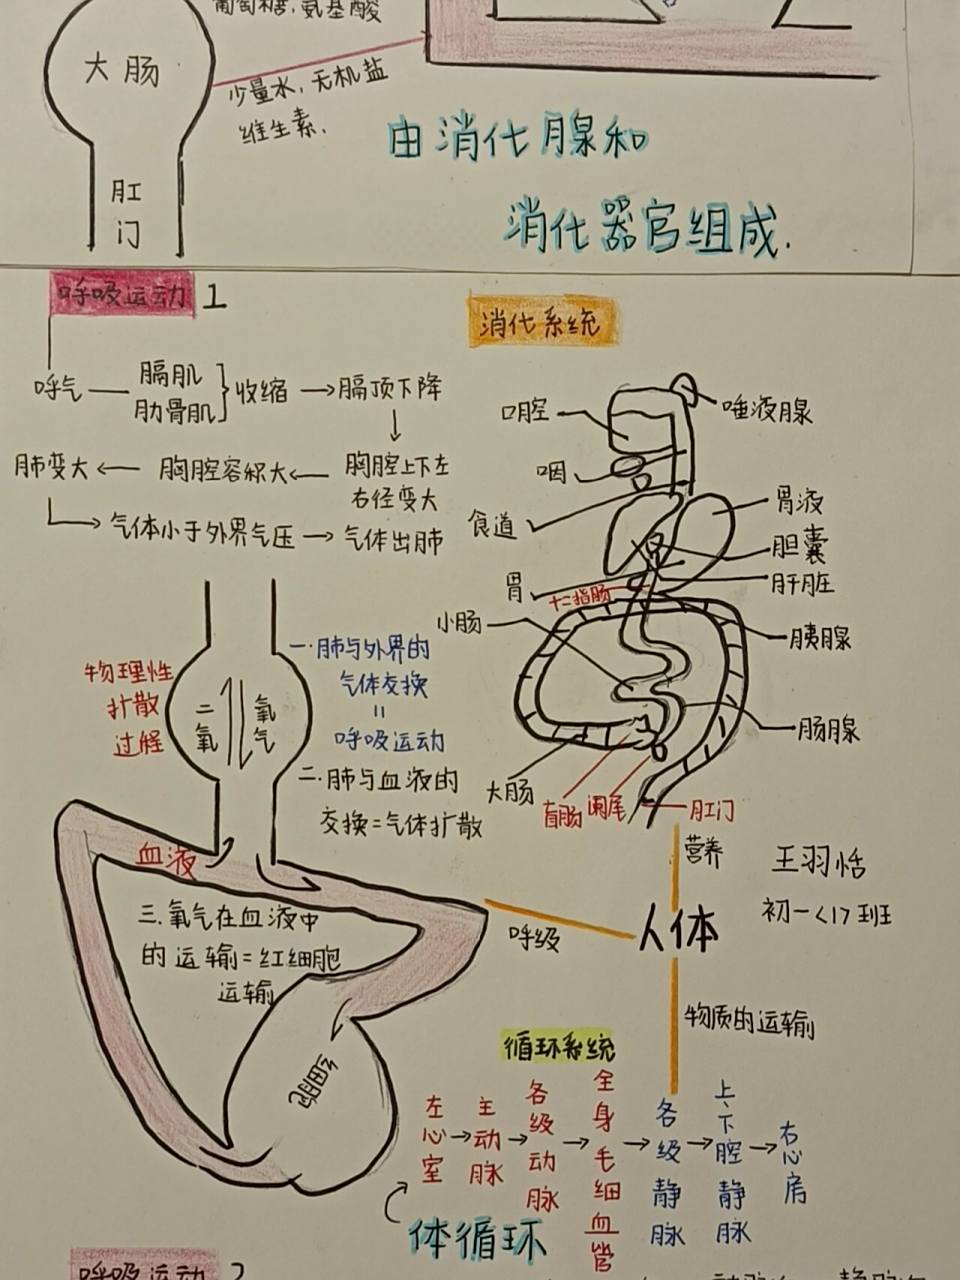 葡萄糖,氨基酸
大肠
少量水,无机盐
维生素.
肛
门
由消化腺和
消化器官组成.
呼吸运动 1
消化系统
呼气
膈肌
肋骨肌
收缩
→膈顶下降
胸腔上下左
右径变大
←胸腔容积大
←肺变大
→气体小于外界气压
→气体出肺
口腔
唾液腺
咽
食道
胃液
胆囊
肝脏
胃
十二指肠
小肠
胰腺
肠腺
大肠
盲肠
阑尾
肛门
物理性
扩散
过程
二氧
氧气
一.肺与外界的
气体交换
=
呼吸运动
二.肺与血液的
交换=气体扩散
血液
三.氧气在血液中
的运输=红细胞
运输
细胞
营养
王羽恬
初一<17班
呼级
人体
物质的运输
循环系统
左心室→主动脉→各级动脉→全身毛细血管→各级静脉→上、下腔静脉→右心房
体循环
呼吸运动 2